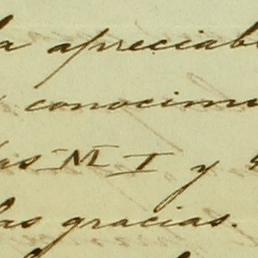 la apreciab
conocim
las M I y
las gracias.